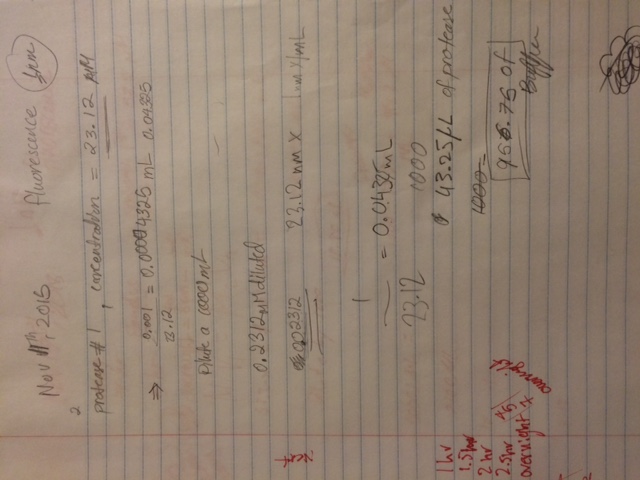 Nov 11th, 2015 fluorescence
2
protease #1, concentration = 23.12 μM
⇒ 0.001 / 23.12 = 0.00004325 mL 0.04325
Dilute a 1000mL
0.2312 μM diluted
0.02312 23.12 nm X
1 / 23.12 = 0.04325mL
1000
43.25 μL of protease
1000-
956.75 of
Buffer
1 hr
1.5 hour
2 hr
2.5hr
overnight